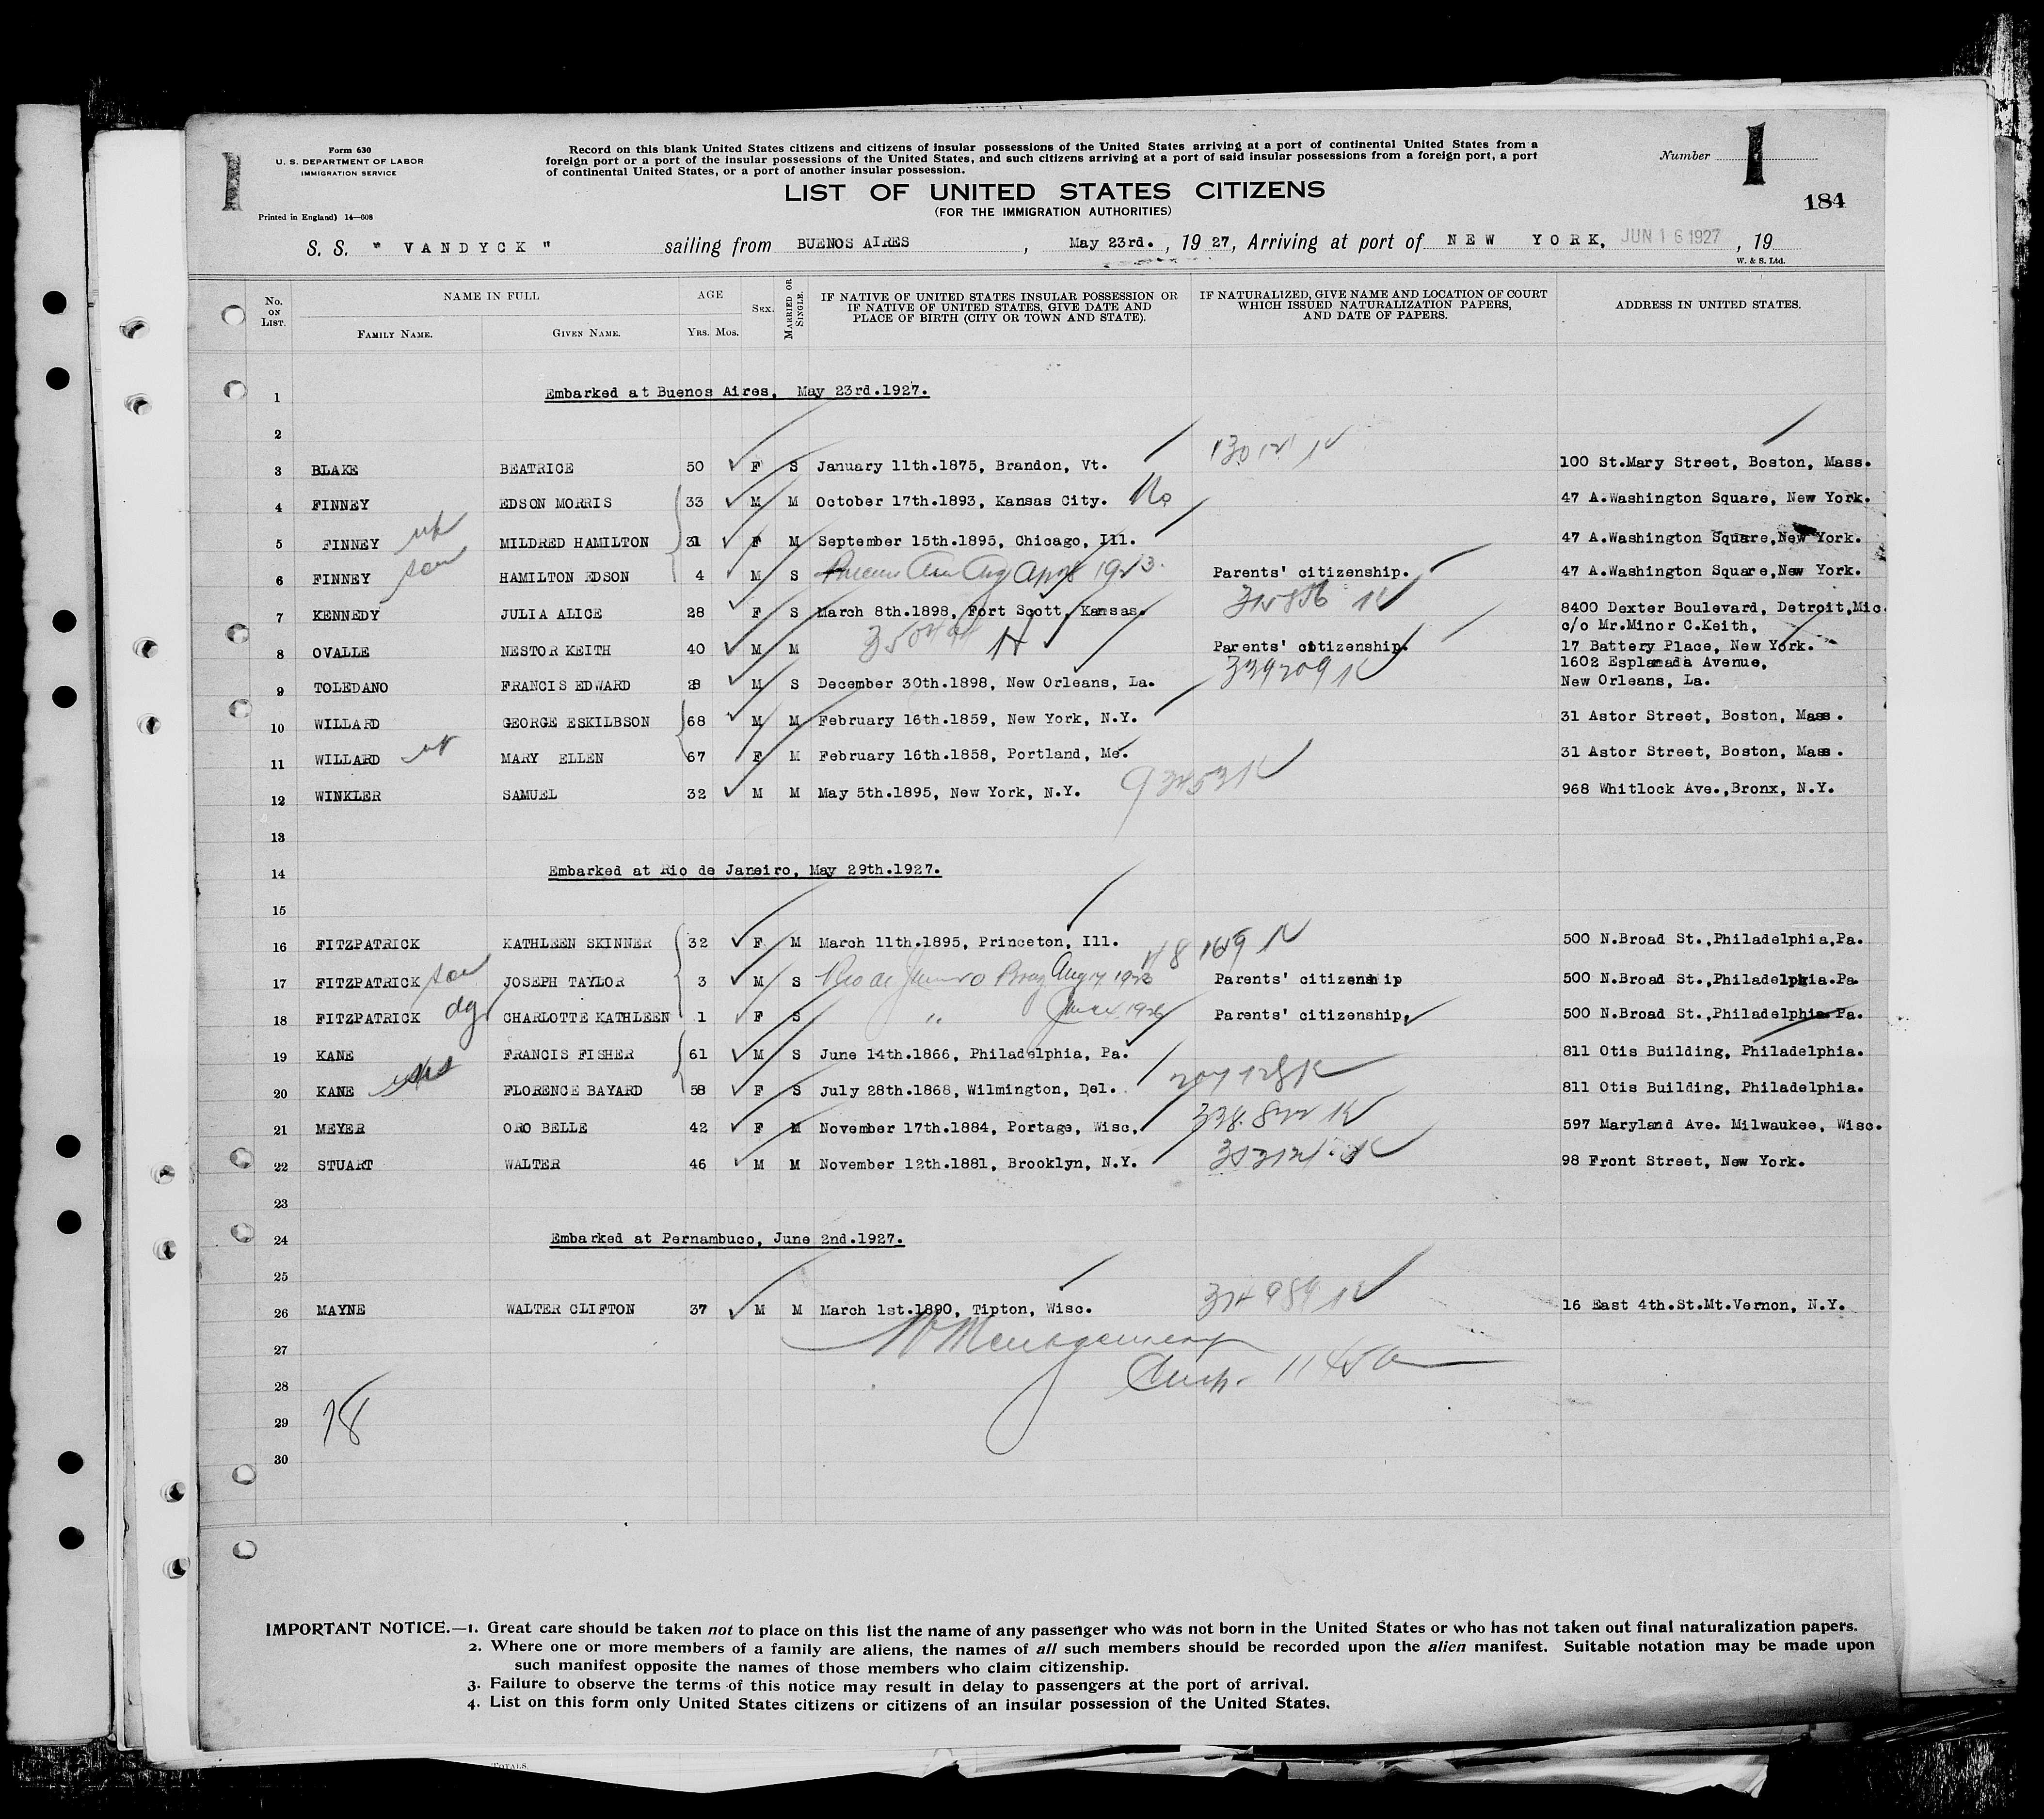 Form 630
U. S. DEPARTMENT OF LABOR
IMMIGRATION SERVICE
Printed in England) 14—608
Record on this blank United States citizens and citizens of insular possessions of the United States arriving at a port of continental United States from a
foreign port or a port of the insular possessions of the United States, and such citizens arriving at a port of said insular possessions from a foreign port, a port
of continental United States, or a port of another insular possession.
Number 1
1
184
LIST OF UNITED STATES CITIZENS
(FOR THE IMMIGRATION AUTHORITIES)
S. S. " VANDYCK " sailing from BUENOS AIRES , May 23rd. , 19 27, Arriving at port of NEW YORK, JUN 16 1927 , 19
W. & S. Ltd.
No. ON LIST. NAME IN FULL AGE SEX. MARRIED OR SINGLE. IF NATIVE OF UNITED STATES INSULAR POSSESSION OR IF NATIVE OF UNITED STATES, GIVE DATE AND PLACE OF BIRTH (CITY OR TOWN AND STATE). IF NATURALIZED, GIVE NAME AND LOCATION OF COURT WHICH ISSUED NATURALIZATION PAPERS, AND DATE OF PAPERS. ADDRESS IN UNITED STATES.
FAMILY NAME. GIVEN NAME. YRS. MOS.
1 Embarked at Buenos Aires, May 23rd.1927.
2
3 BLAKE BEATRICE 50 F S January 11th.1875, Brandon, Vt. 100 St.Mary Street, Boston, Mass.
4 FINNEY EDSON MORRIS 33 M M October 17th.1893, Kansas City. Mo 47 A.Washington Square, New York.
5 FINNEY MILDRED HAMILTON 31 F M September 15th.1895, Chicago, Ill. 47 A.Washington Square,New York.
6 FINNEY son HAMILTON EDSON 4 M S Buenos Aires Arg Apr 1923. Parents' citizenship. 47 A.Washington Square,New York.
7 KENNEDY JULIA ALICE 28 F S March 8th.1898, Fort Scott, Kansas. 8400 Dexter Boulevard, Detroit,Mic.
c/o Mr.Minor C.Keith,
8 OVALLE NESTOR KEITH 40 M M Parents' citizenship. 17 Battery Place, New York.
1602 Esplanada Avenue,
9 TOLEDANO FRANCIS EDWARD 28 M S December 30th.1898, New Orleans, La. 339209 New Orleans, La.
10 WILLARD GEORGE ESKILBSON 68 M M February 16th.1859, New York, N.Y. 31 Astor Street, Boston, Mass.
11 WILLARD MARY ELLEN 67 F M February 16th.1858, Portland, Me. 31 Astor Street, Boston, Mass.
12 WINKLER SAMUEL 32 M M May 5th.1895, New York, N.Y. 968 Whitlock Ave.,Bronx, N.Y.
13
14 Embarked at Rio de Janeiro, May 29th.1927.
15
16 FITZPATRICK KATHLEEN SKINNER 32 F M March 11th.1895, Princeton, Ill. 500 N.Broad St.,Philadelphia,Pa.
17 FITZPATRICK son JOSEPH TAYLOR 3 M S Rio de Janeiro Braz Aug 17 1923 Parents' citizenship 500 N.Broad St.,Philadelphia.Pa.
18 FITZPATRICK dg CHARLOTTE KATHLEEN 1 F S " 1926 Parents' citizenship, 500 N.Broad St.,Philadelphia Pa.
19 KANE FRANCIS FISHER 61 M S June 14th.1866, Philadelphia, Pa. 811 Otis Building, Philadelphia.
20 KANE FLORENCE BAYARD 58 F S July 28th.1868, Wilmington, Del. 811 Otis Building, Philadelphia.
21 MEYER ORO BELLE 42 F M November 17th.1884, Portage, Wisc. 597 Maryland Ave. Milwaukee, Wisc.
22 STUART WALTER 46 M M November 12th.1881, Brooklyn, N.Y. 98 Front Street, New York.
23
24 Embarked at Pernambuco, June 2nd.1927.
25
26 MAYNE WALTER CLIFTON 37 M M March 1st.1890, Tipton, Wisc. 16 East 4th.St.Mt.Vernon, N.Y.
27 Montgomery
28
29 18
30
IMPORTANT NOTICE.—1. Great care should be taken not to place on this list the name of any passenger who was not born in the United States or who has not taken out final naturalization papers.
2. Where one or more members of a family are aliens, the names of all such members should be recorded upon the alien manifest. Suitable notation may be made upon
such manifest opposite the names of those members who claim citizenship.
3. Failure to observe the terms of this notice may result in delay to passengers at the port of arrival.
4. List on this form only United States citizens or citizens of an insular possession of the United States.
TOTALS